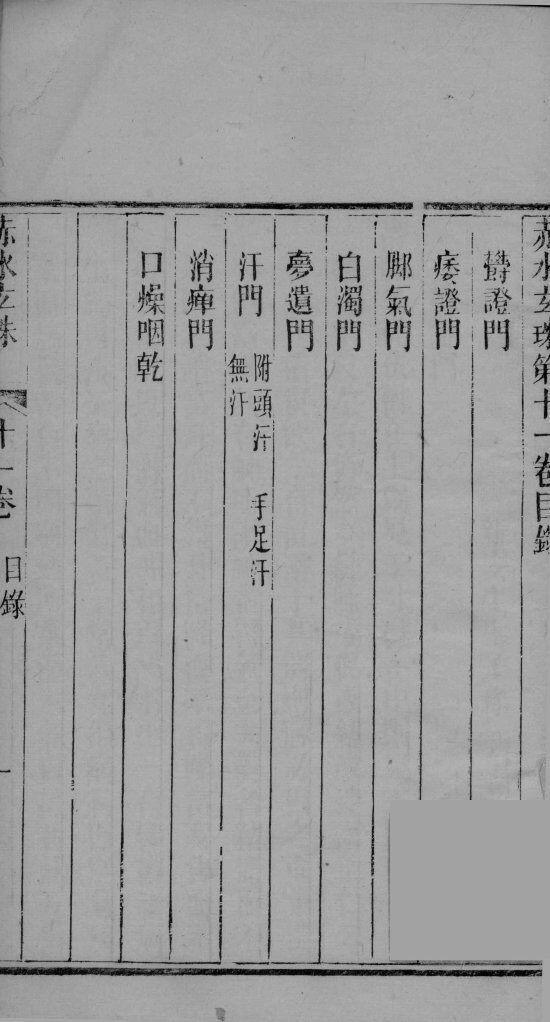 赤水玄珠第十一卷目錄
鬱證門
痿證門
腳氣門
白濁門
夢遺門
汗門 附頭汗 手足汗
無汗
消癉門
口燥咽乾
赤水玄珠 十一卷 目錄 一